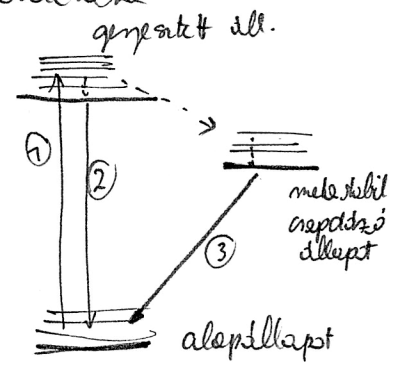 gerjesztett áll.
1
2
metastabil
csapdázó
állapot
3
alapállapot